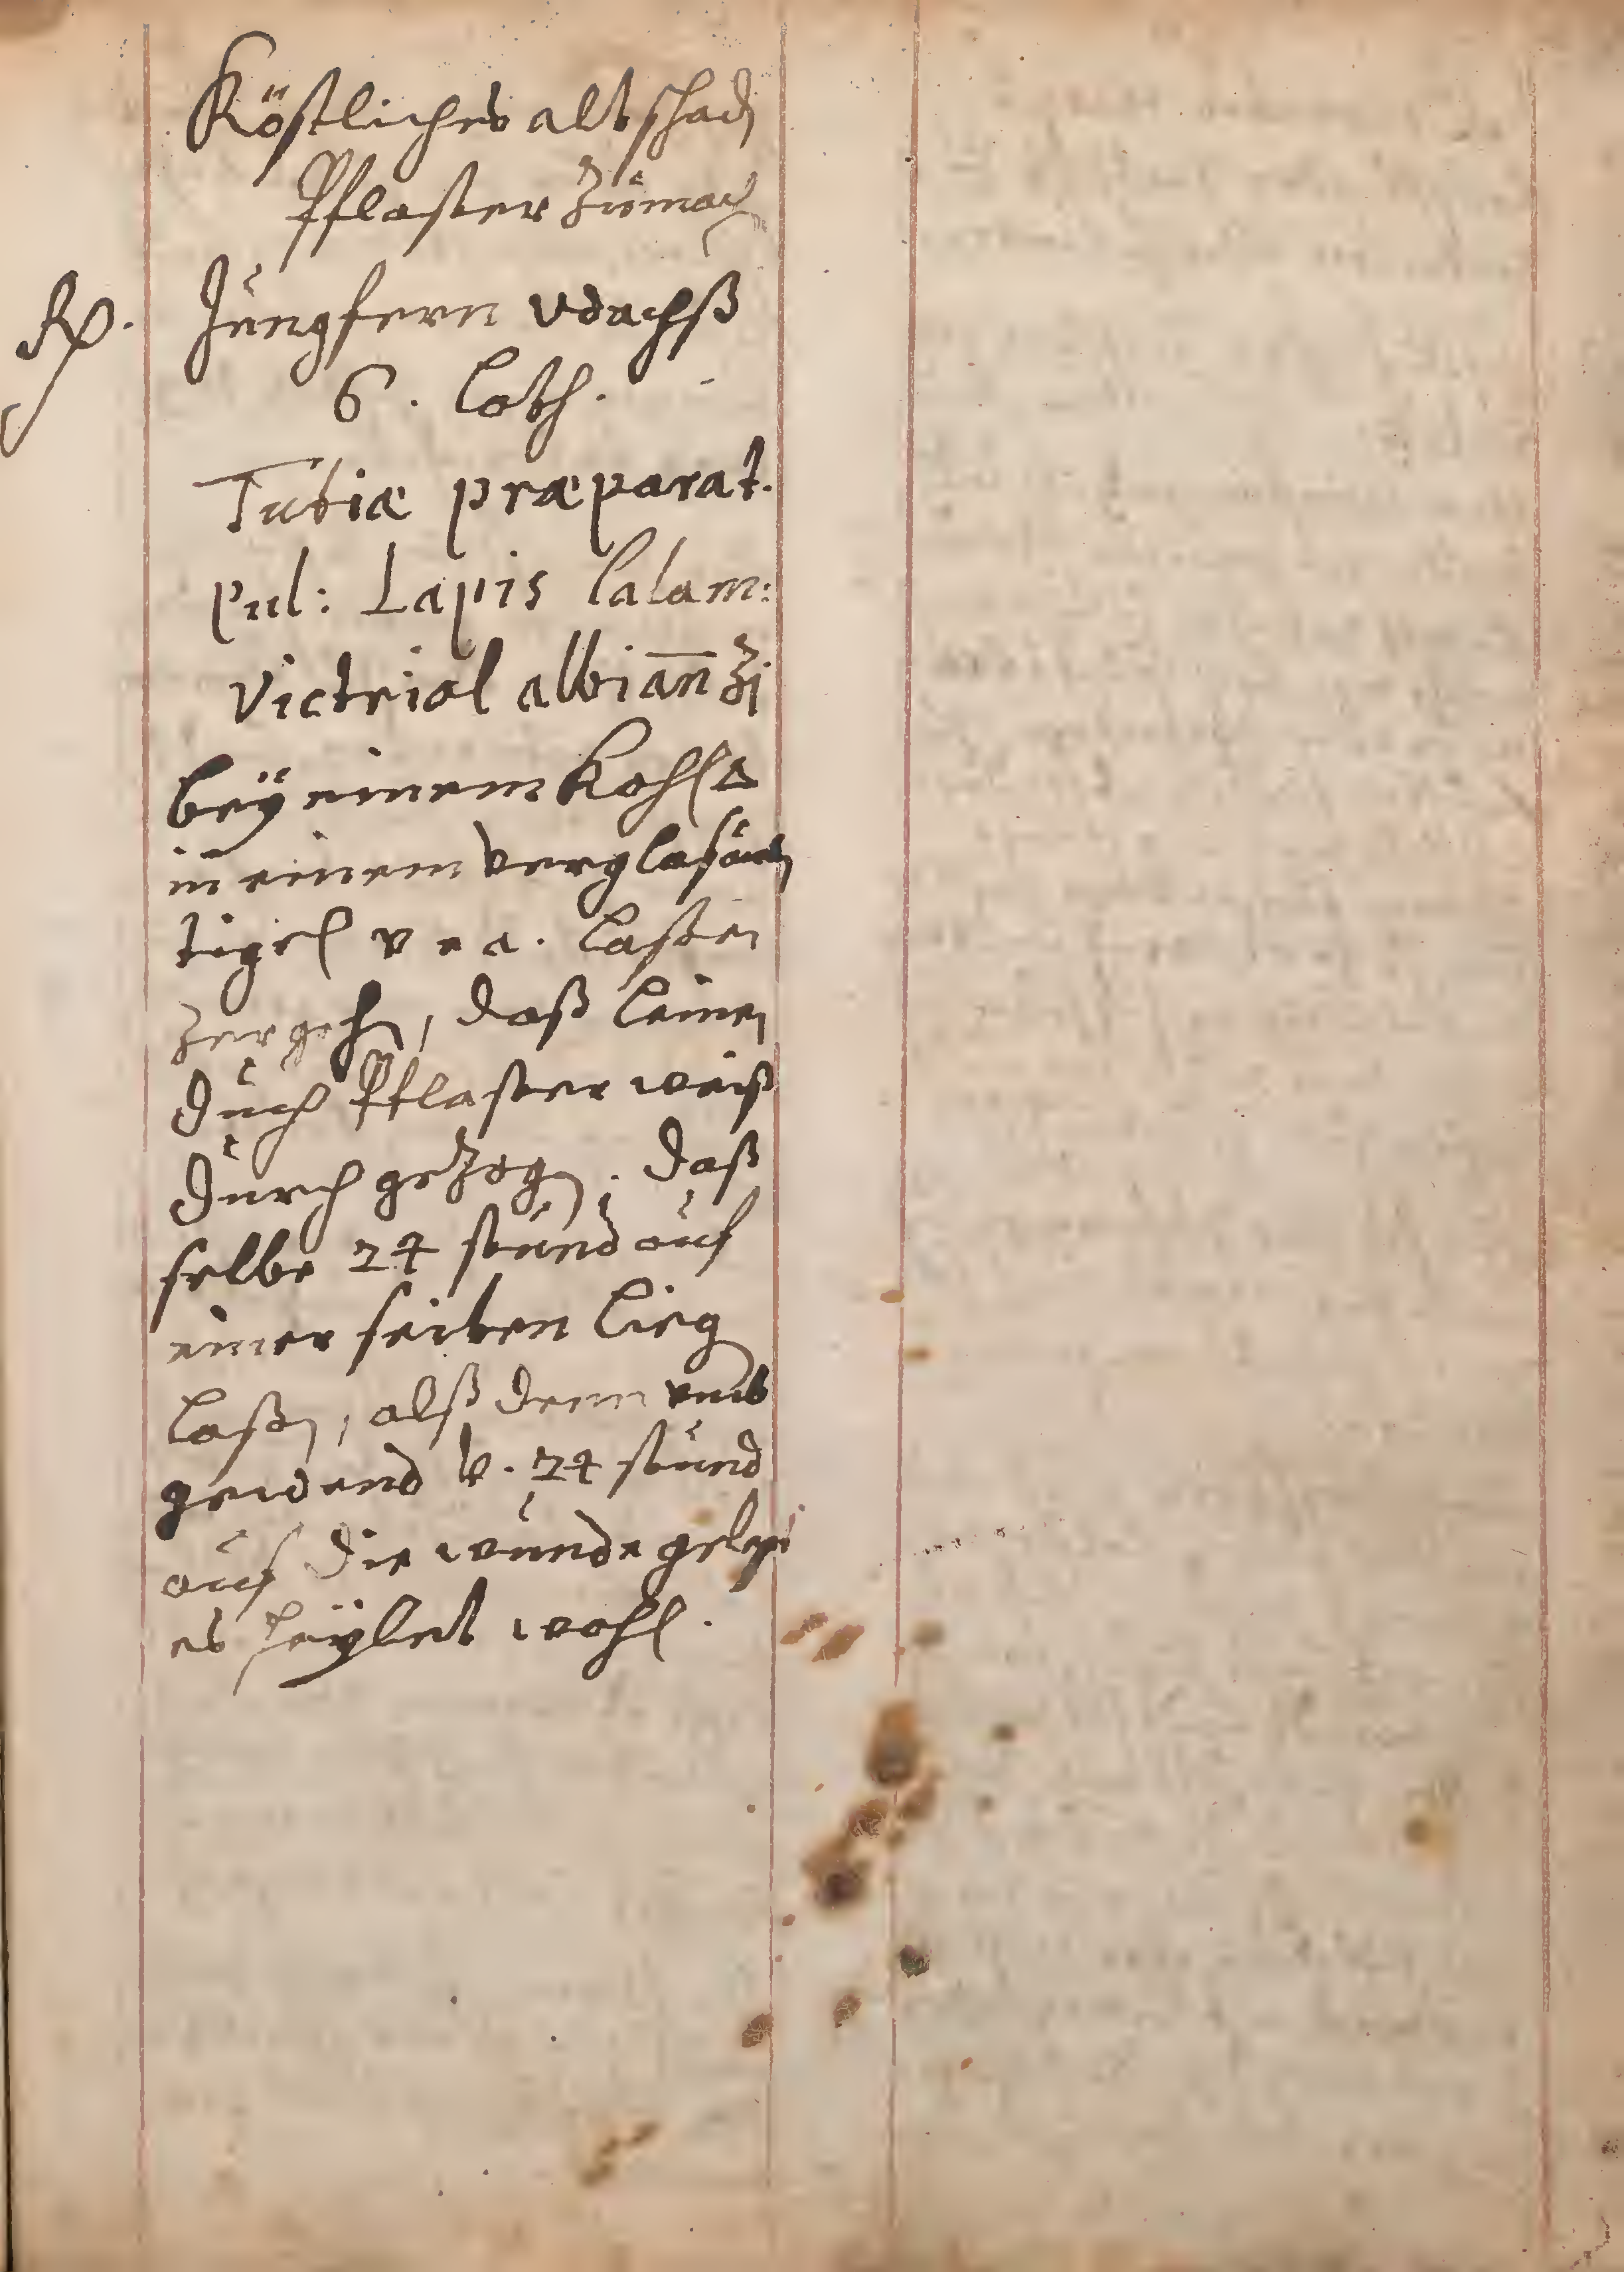 Köstliches alt schad
Pflaster Zümach
Rp. Jüngfern wachß
6. Loth.
Tutiæ præparat.
pul: Lapis Calam:
Victriol albi an̄ ʒj
beÿ einem Kohl🜂
in einem verglasürtn
tigel v e a. laßen
zergehn, daß leinen
Düch Pflaster weiß
Dürch geZogn. daß
selbe 24 stünd aüf
einer seiten lieg
laßn, alß denn vmb
gewend v. 24 stünd
aüf die wünde gelegt
es heÿlet wohl.